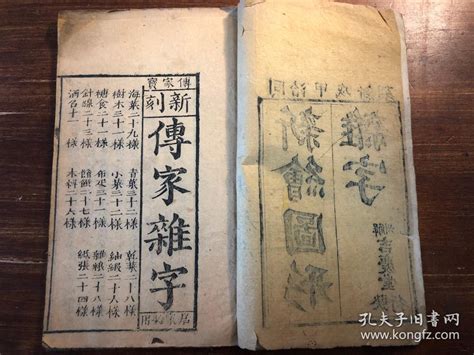 傳家寶
新刻
傳家雜字
居家必用
海菜二十九樣 青菜三十二樣 乾菜二十八樣
樹木三十一樣 小菜二十二樣 紬緞二十六樣
糖食二十一樣 布疋三十一樣 雜糧二十八樣
針線二十三樣 二十七樣 紙張二十四樣
酒名十一樣 木料二十六樣
同治甲戌新
新繪圖形
雜字
孔夫子旧书网
www.kongfz.com